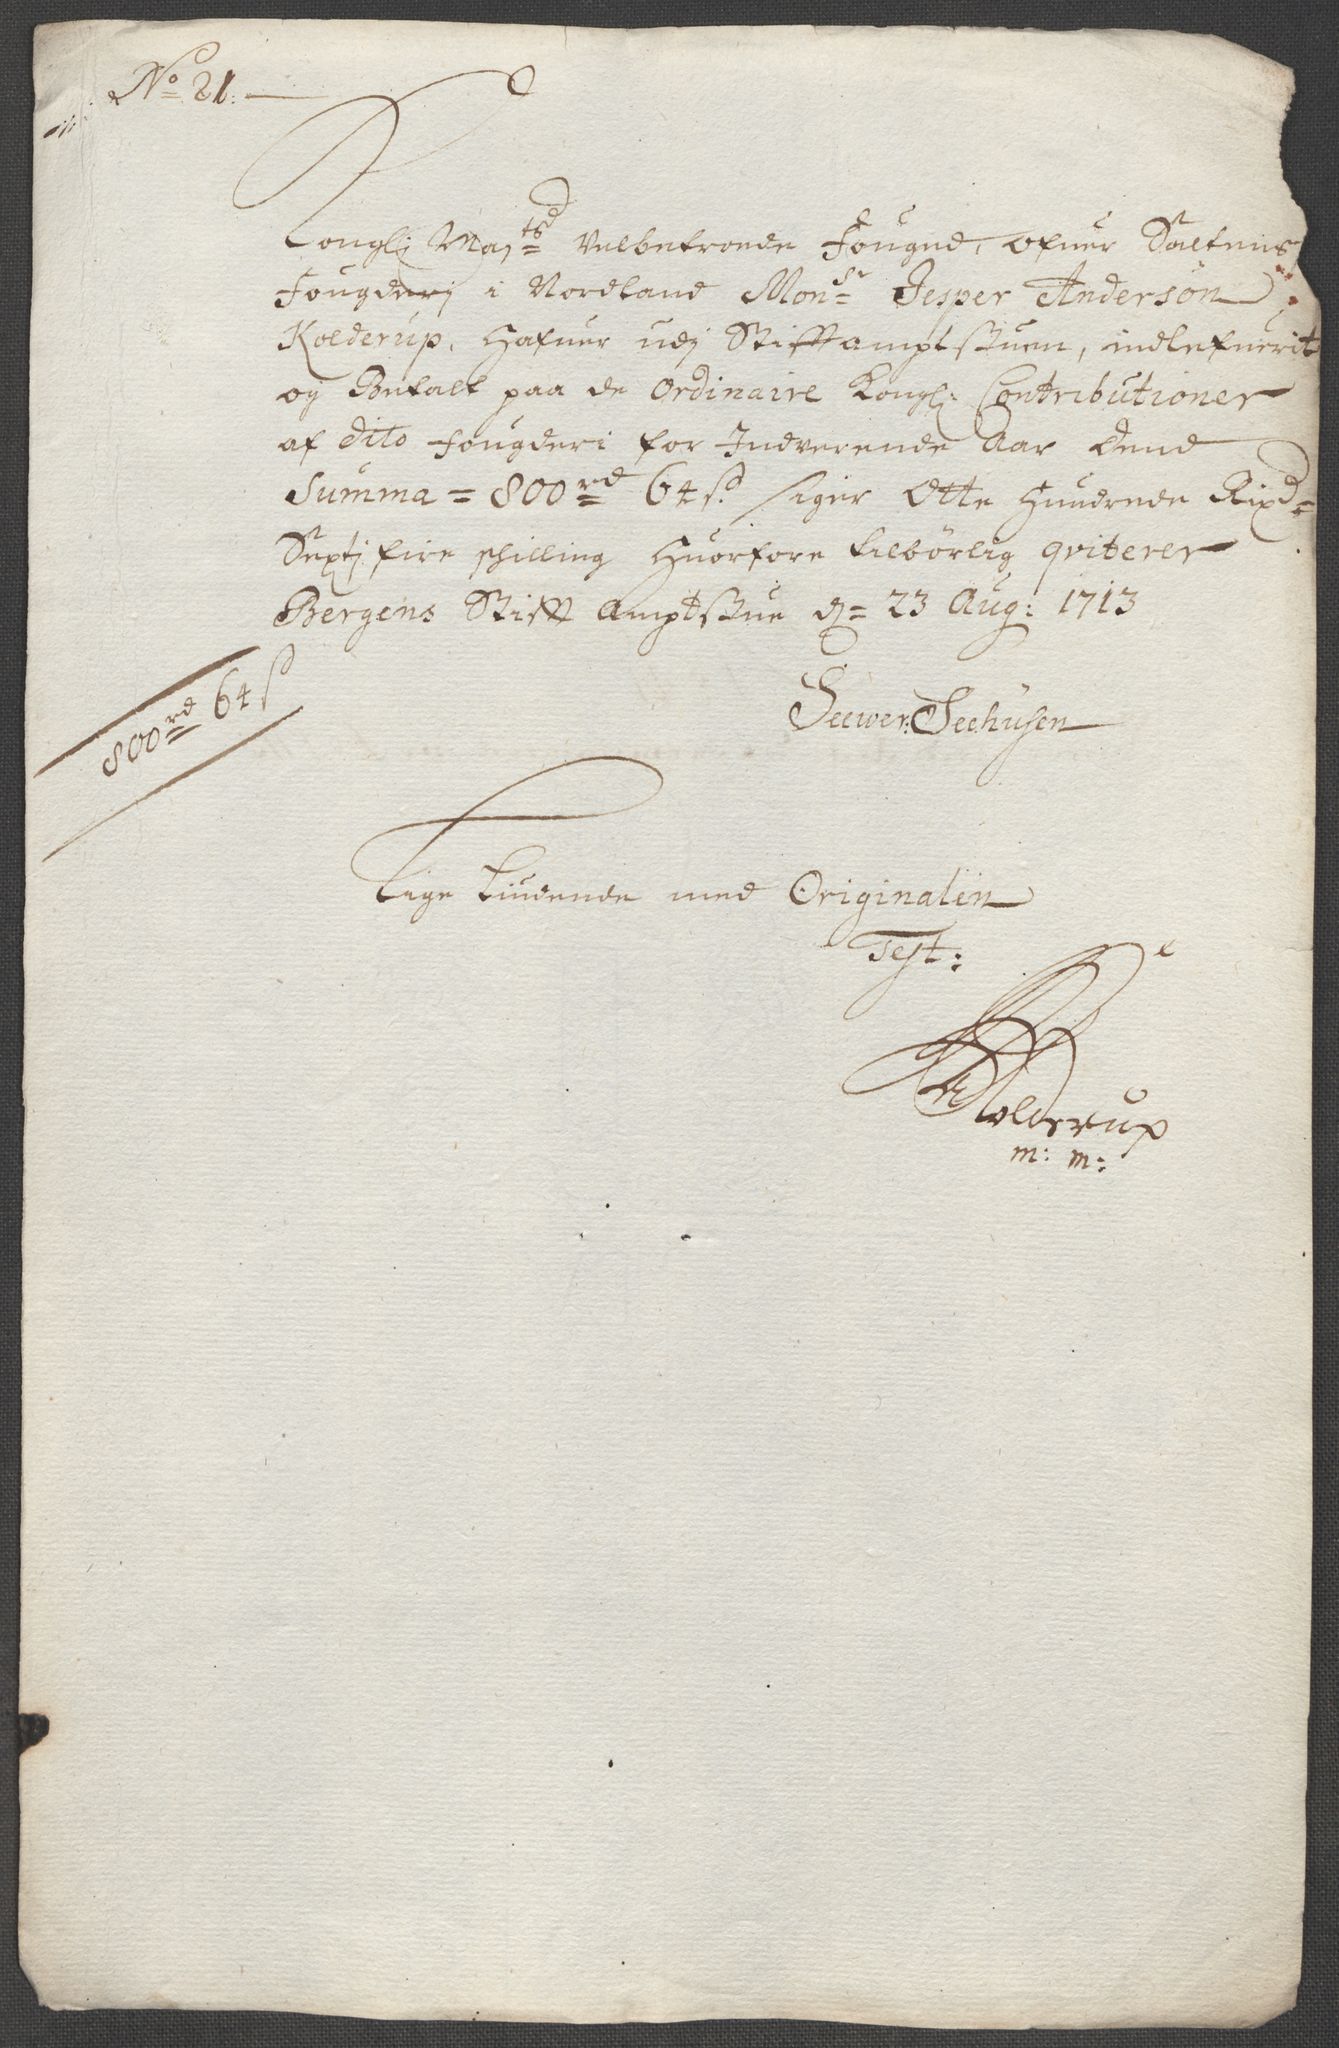 No 21.
Kongl: Maj:ts Velbetroede Fouged, ofuer Saltens
Fougderj i Nordland Mons:r Jesper Andersøn
Kolderup, Hafuer udj Stifftamptstuen, indlefuerit
og Betalt paa de Ordinaire Kongl: Contributioner
af dito Fougderi for Indverende Aar dend
Summa = 800 rd 64 s. siger Otte Hundrede Rixd:
Sextj fire schilling huorfore tilbörlig qviterer
Bergens Stifft Amptstue d: 23 Aug: 1713
800 rd 64 s
Seewer: Seehusen
Lige Liudende med Originalen
Test:
Kolderup
m: m: